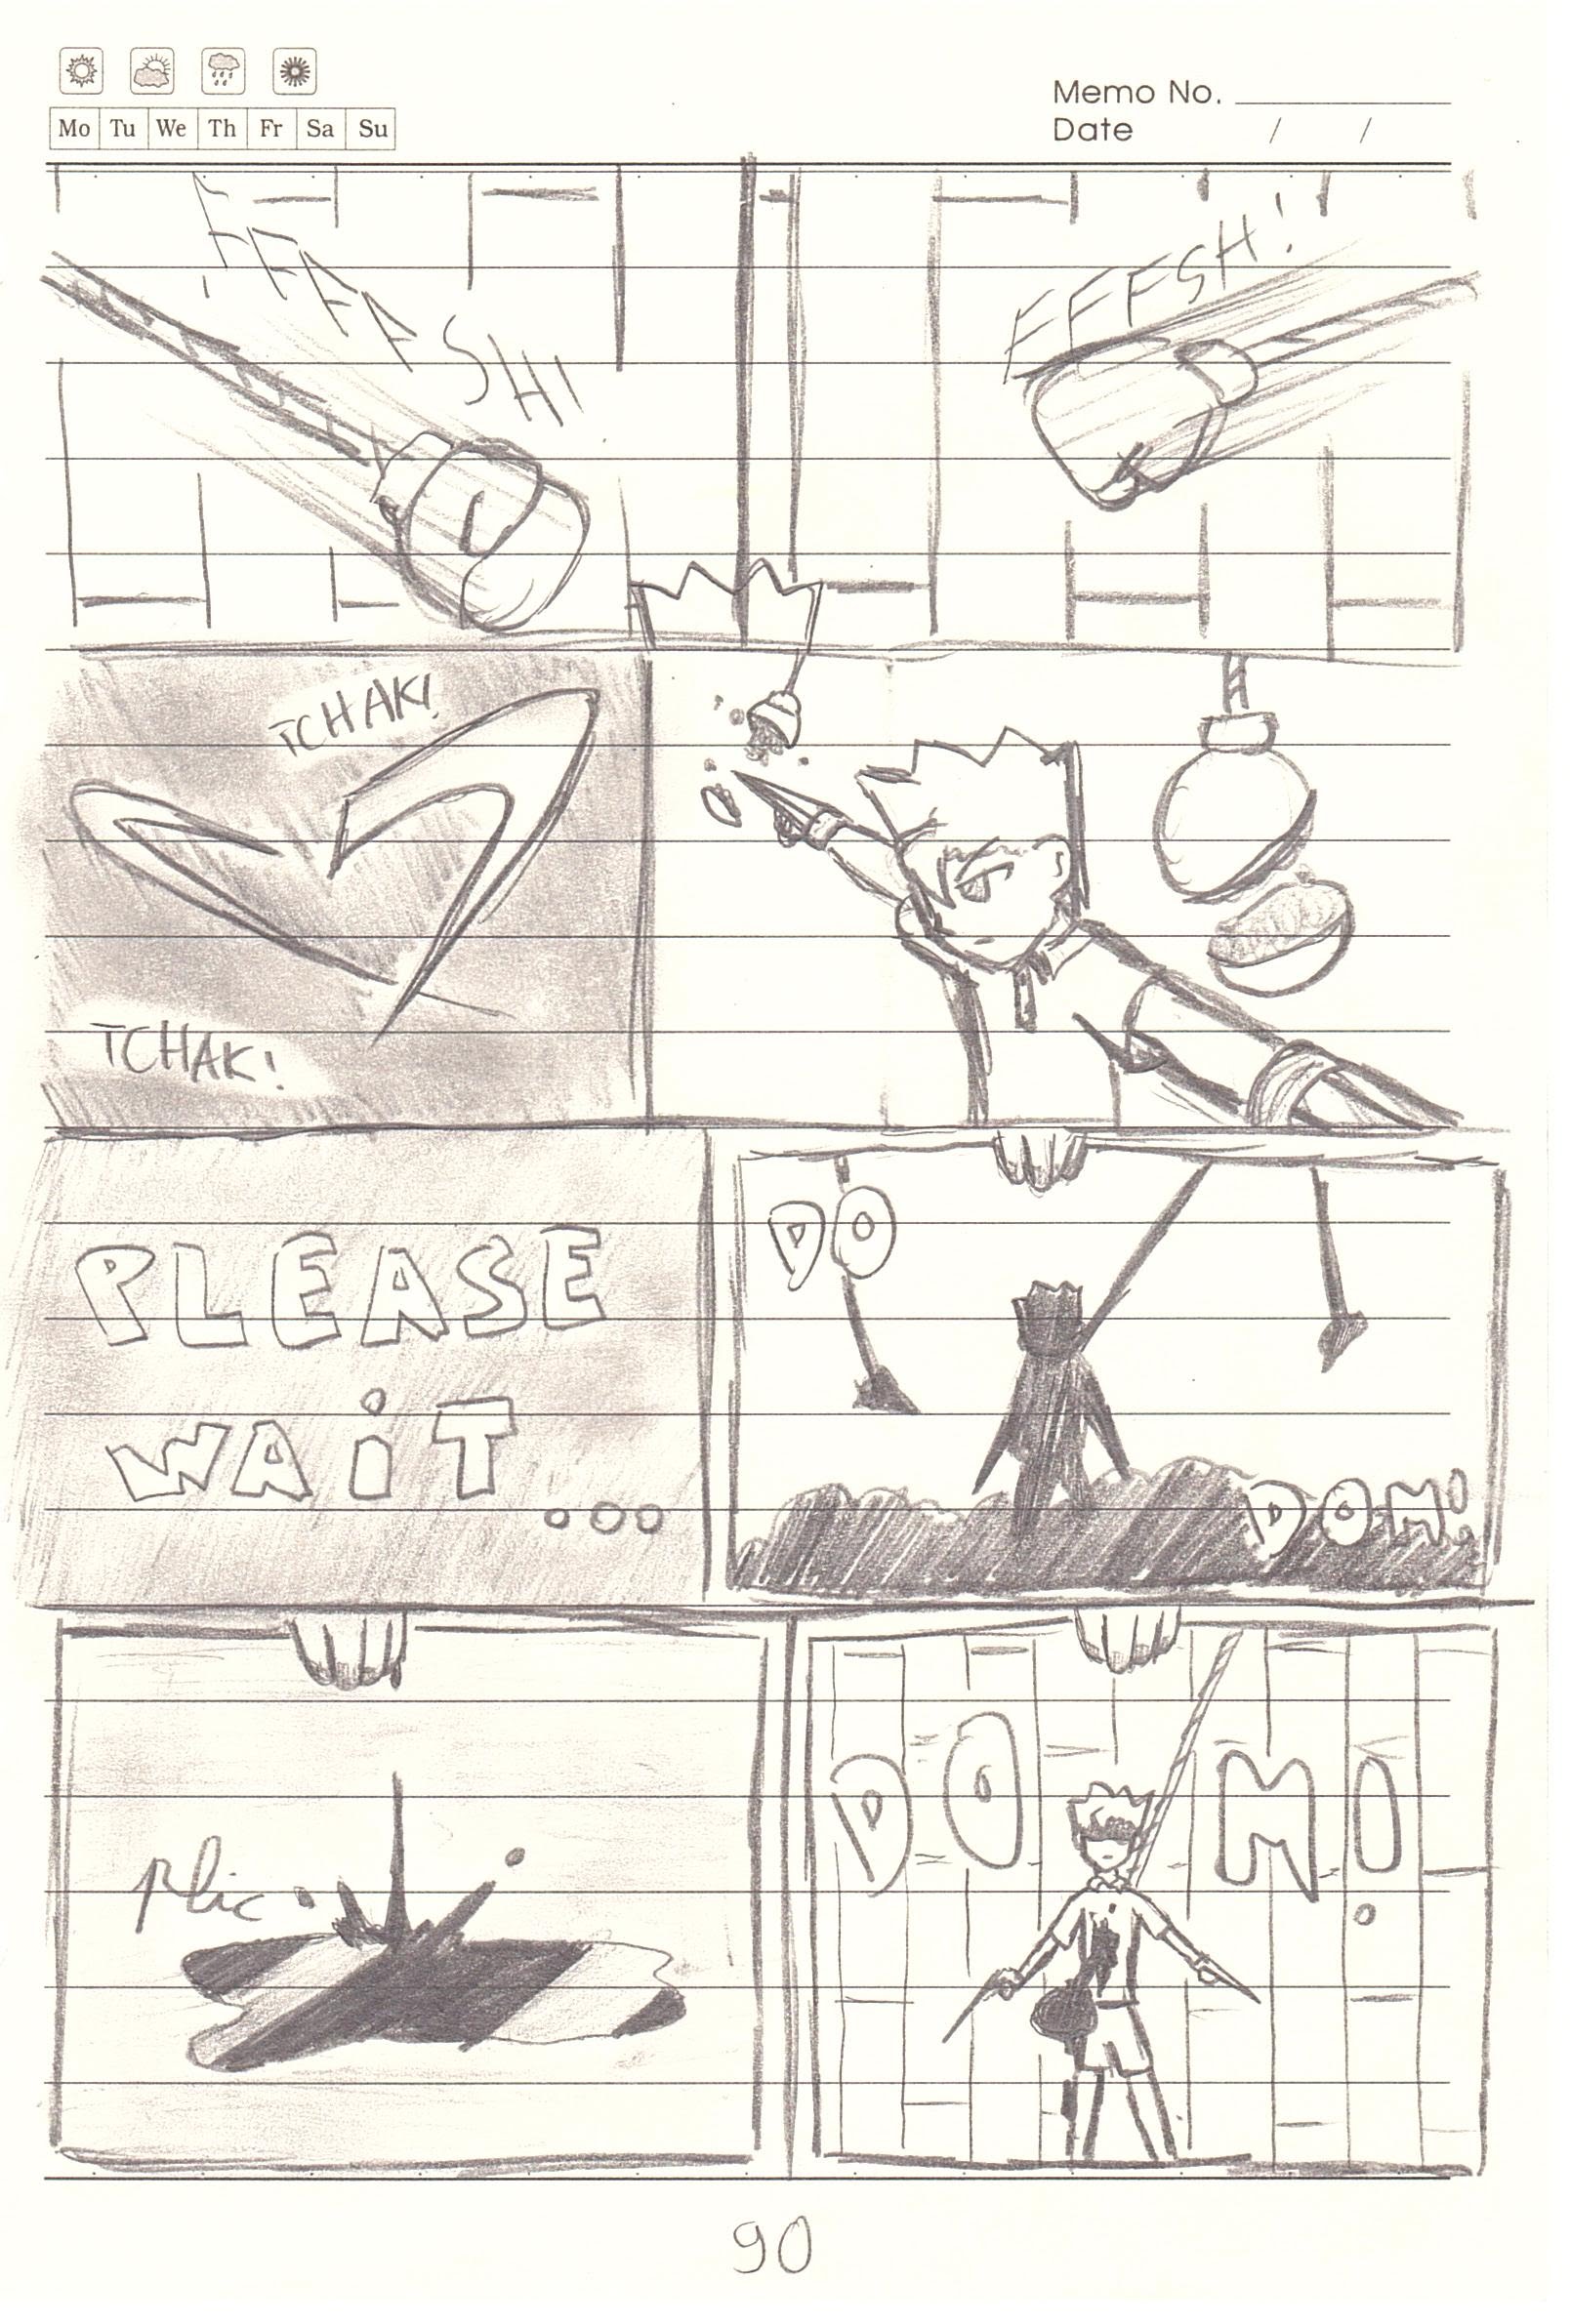 Mo Tu We Th Fr Sa Su
Memo No.
Date / /
FFFFSH!
FFFSH!
TCHAK!
TCHAK!
PLEASE
WAiT...
DO
DOMi
plic
DO Mi
90